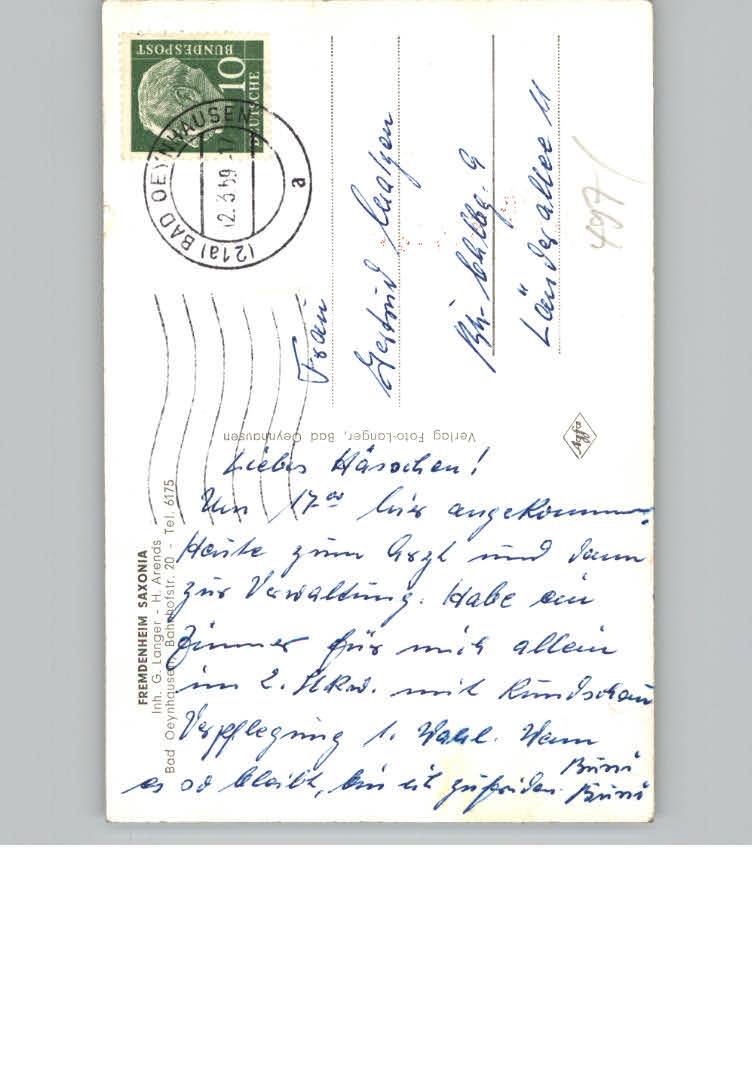 DEUTSCHE
BUNDESPOST
10
(21a) BAD OEYNHAUSEN
12.3.59.-17
a
Frau
Gertrud
Bln. Chlbg. 9
Länderallee 11
497
Agfa
Verlag Foto-Langer, Bad Oeynhausen
FREMDENHEIM SAXONIA
Inh. G. Langer - H. Arends
Bad Oeynhausen, Bahnhofstr. 20 - Tel. 6175
Liebes Häschen!
Um 17 00 hier angekommen.
Heute zum Arzt und dann
zur Verwaltung. Habe ein
Zimmer für mich allein
im 2. Stkw. mit Rundschau
Verpflegung 1. Wahl. Wenn
es so bleibt, bin ich zufrieden.